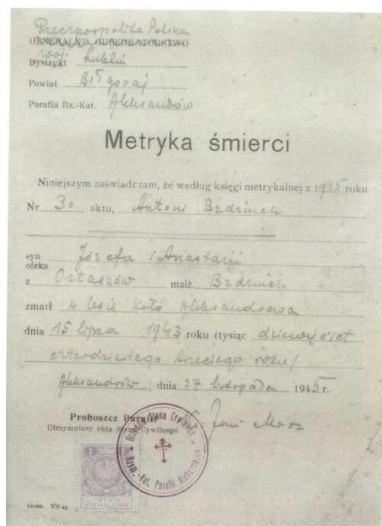 Rzeczpospolita Polska
GENERALNE GUBERNATORSTWO
woj.
Dystrykt Lublin
Powiat Biłgoraj
Parafia Rz.-Kat. Aleksandrów
Metryka śmierci
Niniejszym zaświadczam, że według księgi metrykalnej z 1945 roku
Nr 30 aktu, Antoni Brdziuch
syn Józefa i Anastazji
córka
z Ortaszów małż. Brdziuch
zmarł w lesie koło Aleksandrowa
dnia 15 lipca 1943 roku (tysiąc dziewięćset
czterdziestego trzeciego roku/
Aleksandrów, dnia 27 listopada 1945 r.
Proboszcz Parafii
Utrzymujący akta Stanu Cywilnego
Urzęd. Stanu Cywiln.
Rzym.-Kat. Parafii